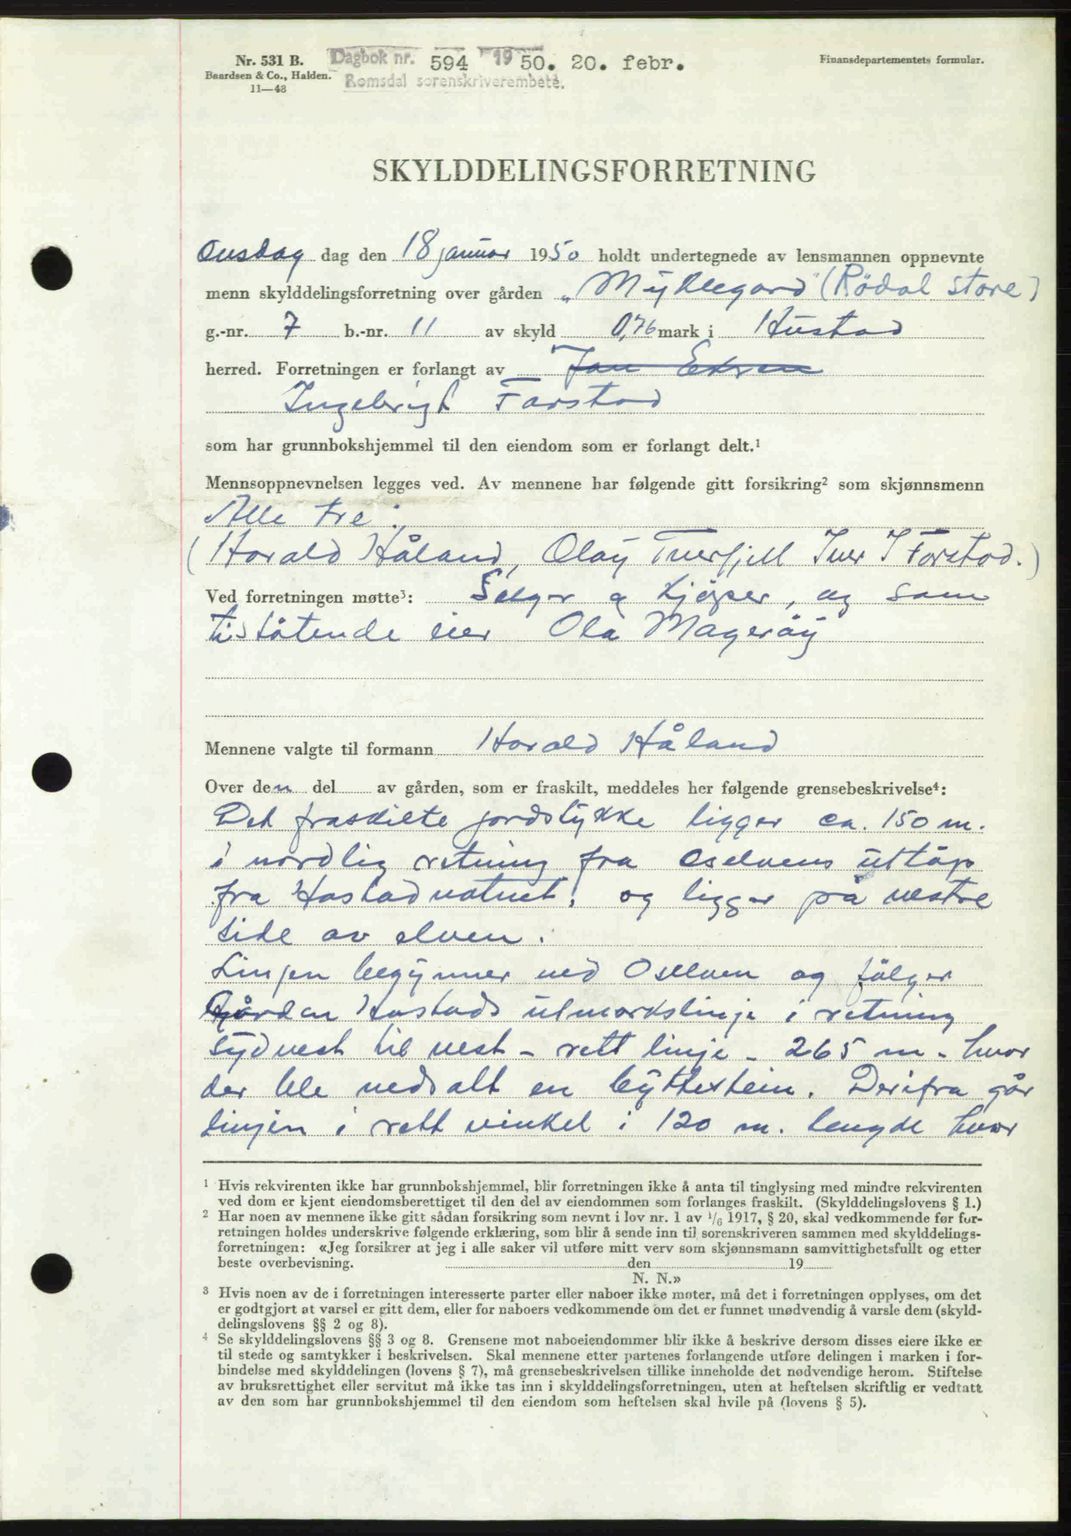 Nr. 531 B.
Baardsen & Co., Halden.
11—48
Dagbok nr. 594 1950. 20. febr.
Romsdal sorenskriverembete.
Finansdepartementets formular.
SKYLDDELINGSFORRETNING
Onsdag dag den 18 januar 1950 holdt undertegnede av lensmannen oppnevnte
menn skylddelingsforretning over gården „Myklegard" (Rödal store)
g.-nr. 7 b.-nr. 11 av skyld 0,76 mark i Hustad
herred. Forretningen er forlangt av Jan
Ingebrigt Farstad
som har grunnbokshjemmel til den eiendom som er forlangt delt.¹
Mennsoppnevnelsen legges ved. Av mennene har følgende gitt forsikring² som skjønnsmenn
Alle tre:
(Harald Håland, Olay Tverfjell Iver I Farstad.)
Ved forretningen møtte³: Selger og kjøper, og som
tilstøtende eier Ola Magerøy
Mennene valgte til formann Harald Håland
Over den del av gården, som er fraskilt, meddeles her følgende grensebeskrivelse⁴:
Det fraskilte jordstykke ligger ca. 150 m.
i nordlig retning fra Oselvens utløp
fra Hostadvatnet, og ligger på vestre
side av elven.
Linjen begynner ved Oselven og følger
Gården Hostads utmarkslinje i retning
sydvest til vest - rett linje - 265 m. hvor
der ble nedsatt en byttestein. Derifra går
linjen i rett vinkel i 120 m. lengde hvor
¹ Hvis rekvirenten ikke har grunnbokshjemmel, blir forretningen ikke å anta til tinglysing med mindre rekvirenten
ved dom er kjent eiendomsberettiget til den del av eiendommen som forlanges fraskilt. (Skylddelingslovens § 1.)
² Har noen av mennene ikke gitt sådan forsikring som nevnt i lov nr. 1 av ¹/₆ 1917, § 20, skal vedkommende før for-
retningen holdes underskrive følgende erklæring, som blir å sende inn til sorenskriveren sammen med skylddelings-
forretningen: «Jeg forsikrer at jeg i alle saker vil utføre mitt verv som skjønnsmann samvittighetsfullt og etter
beste overbevisning. den 19
N. N.»
³ Hvis noen av de i forretningen interesserte parter eller naboer ikke møter, må det i forretningen opplyses, om det
er godtgjort at varsel er gitt dem, eller for naboers vedkommende om det er funnet unødvendig å varsle dem (skyld-
delingslovens §§ 2 og 8).
⁴ Se skylddelingslovens §§ 3 og 8. Grensene mot naboeiendommer blir ikke å beskrive dersom disses eiere ikke er
til stede og samtykker i beskrivelsen. Skal mennene etter partenes forlangende utføre delingen i marken i for-
bindelse med skylddelingen (lovens § 7), må grensebeskrivelsen tillike inneholde det nødvendige herom. Stiftelse
av bruksrettighet eller servitut må ikke tas inn i skylddelingsforretningen, uten at heftelsen skriftlig er vedtatt
av den som har grunnbokshjemmel til den eiendom som heftelsen skal hvile på (lovens § 5).